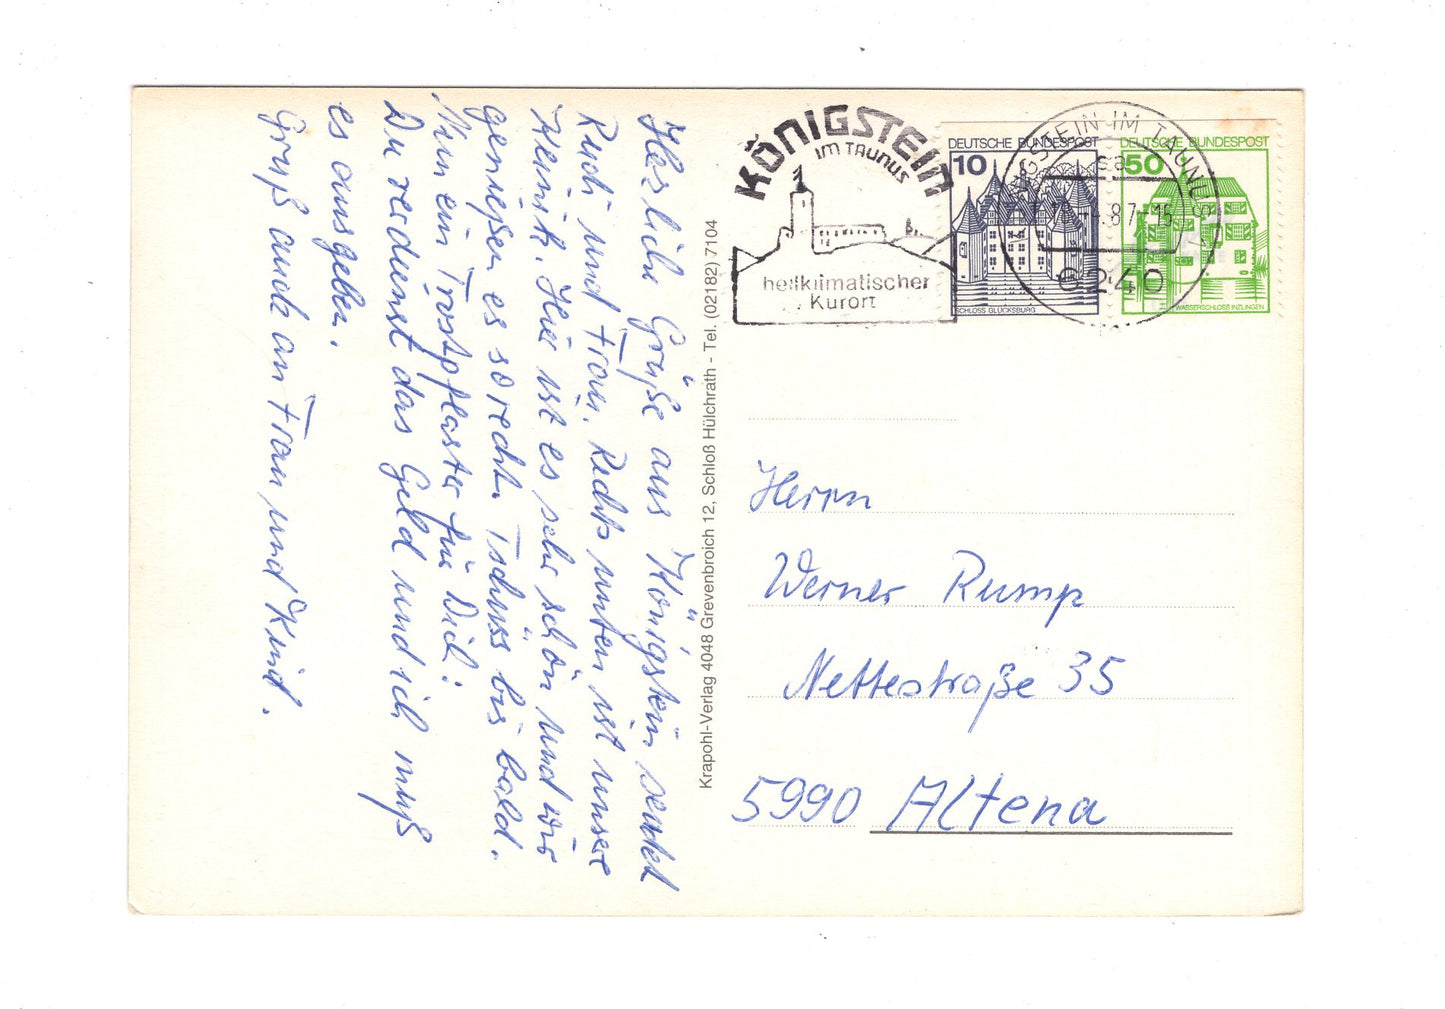 Herzliche Grüße aus Königstein sendet
Rudi und Frau. Rechts unten ist unsere
Klinik. Hier ist es sehr schön und wir
genießen es so recht. Tschüss bis bald.
Nun ein Trostpflaster für Dich:
Du verdienst das Geld und ich muß
es ausgeben.
Gruß auch an Frau und Kind.
Krapohl-Verlag 4048 Grevenbroich 12, Schloß Hülchrath - Tel. (02182) 7104
KÖNIGSTEIN
IM TAUNUS
heilklimatischer
Kurort
DEUTSCHE BUNDESPOST
10
SCHLOSS GLÜCKSBURG
DEUTSCHE BUNDESPOST
50
WASSERSCHLOSS INZLINGEN
KÖNIGSTEIN IM TAUNUS
6240
Herrn
Werner Rump
Nettestraße 35
5990 Altena